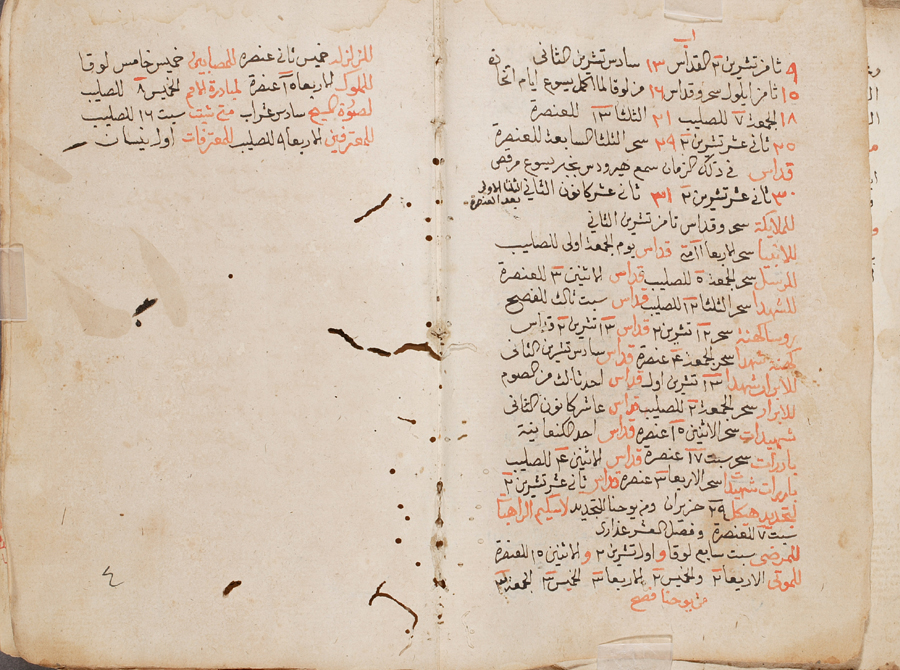 اب
٩ ثامن تشرين ٢ القداس ١٣ سادس تشرين الثاني
١٥ ثامن ايلول سحر وقداس ١٦ من لوقا لما اكمل يسوع ايام
١٨ الجمعة ٧ للصليب ٢١ الثلثا ١٣ للعنصرة
٢٥ ثاني عشر تشرين ٢ ٢٩ سحر الثلثا السابعة للعنصرة
قداس في ذلك الزمان سمع هيرودس بخبر يسوع مرقص
٣٠ ثاني عشر تشرين ٢ ٣١ ثاني عشر كانون الثاني الثلثا الاولى
بعد العنصرة
للملايكة سحر وقداس ثامن تشرين الثاني
للانبيا سحر الاربعا قداس يوم الجمعة اولى للصليب
للرسل سحر الجمعة ٥ للصليب قداس الاثنين ٣ للعنصرة
للشهدا سحر الثلثا ١٢ للصليب قداس سبت ثالث للفصح
روسا كهنة سحر ١٢ تشرين ٢ قداس ١٣ تشرين ٢ قداس
كهنة شهدا سحر الجمعة ٤ عنصرة قداس سادس تشرين الثاني
للابرار شهدا ١٣ تشرين اول قداس احد ثالث من الصوم
للابرار سحر الجمعة ٢ للصليب قداس عاشر كانون الثاني
شهيدات سحر الاثنين ١٥ عنصرة قداس احد الكنعانية
بارات سحر سبت ١٧ عنصرة قداس الاثنين ٤ للصليب
بارات شهيدات سحر الاربعا ٣ عنصرة قداس ثاني عشر تشرين ٢
لتجديد هيكل ٢٩ حزيران ومن يوحنا التجديد لاسكيم الراهبات
سبت ٧ للعنصرة وفصل العشر عذارى
للمرضى سبت سابع لوقا واول تشرين ٢ والاثنين ١٥ للعنصرة
للموتى الاربعا ٢ والخميس ٢ الاربعا ٣ الخميس ٣ الجمعة ٣
من يوحنا فصح
للزلزلة خميس ثاني عنصرة للمصايب خميس خامس لوقا
للملوك الاربعا ١٥ عنصرة لمبادرة الامم الخميس ٨ للصليب
لصلوة المسيح سادس عشر اب متى ثبتت سبت ١٦ للصليب
للمعترفين الاربعا ٩ للصليب للمعترفات اول نيسان
٤